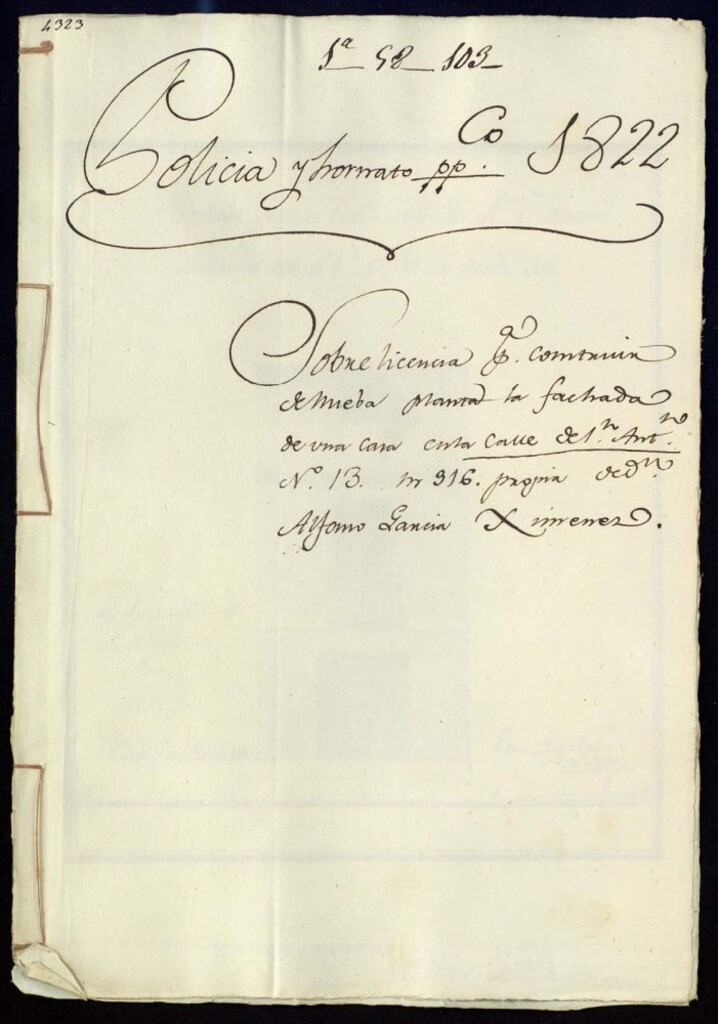 4323
1ª 58 103
Policia y hornato pp. Co 1822
Sobre licencia pª. construir
de nueba planta la fachada
de una casa en la Calle de Sn. Antnio.
Nº. 13. m 316. propia de Dn.
Alfonso Garcia Ximenez.